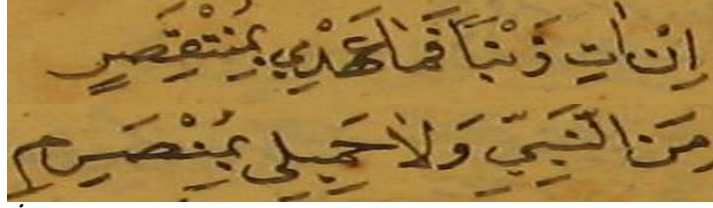 اِنْ اٰتِ ذَنْبًا فَمَا عَهْدِي بِمُنْتَقِصٍ
مِنَ النَّبِيِّ وَلَا حَبْلِي بِمُنْصَرِمِ